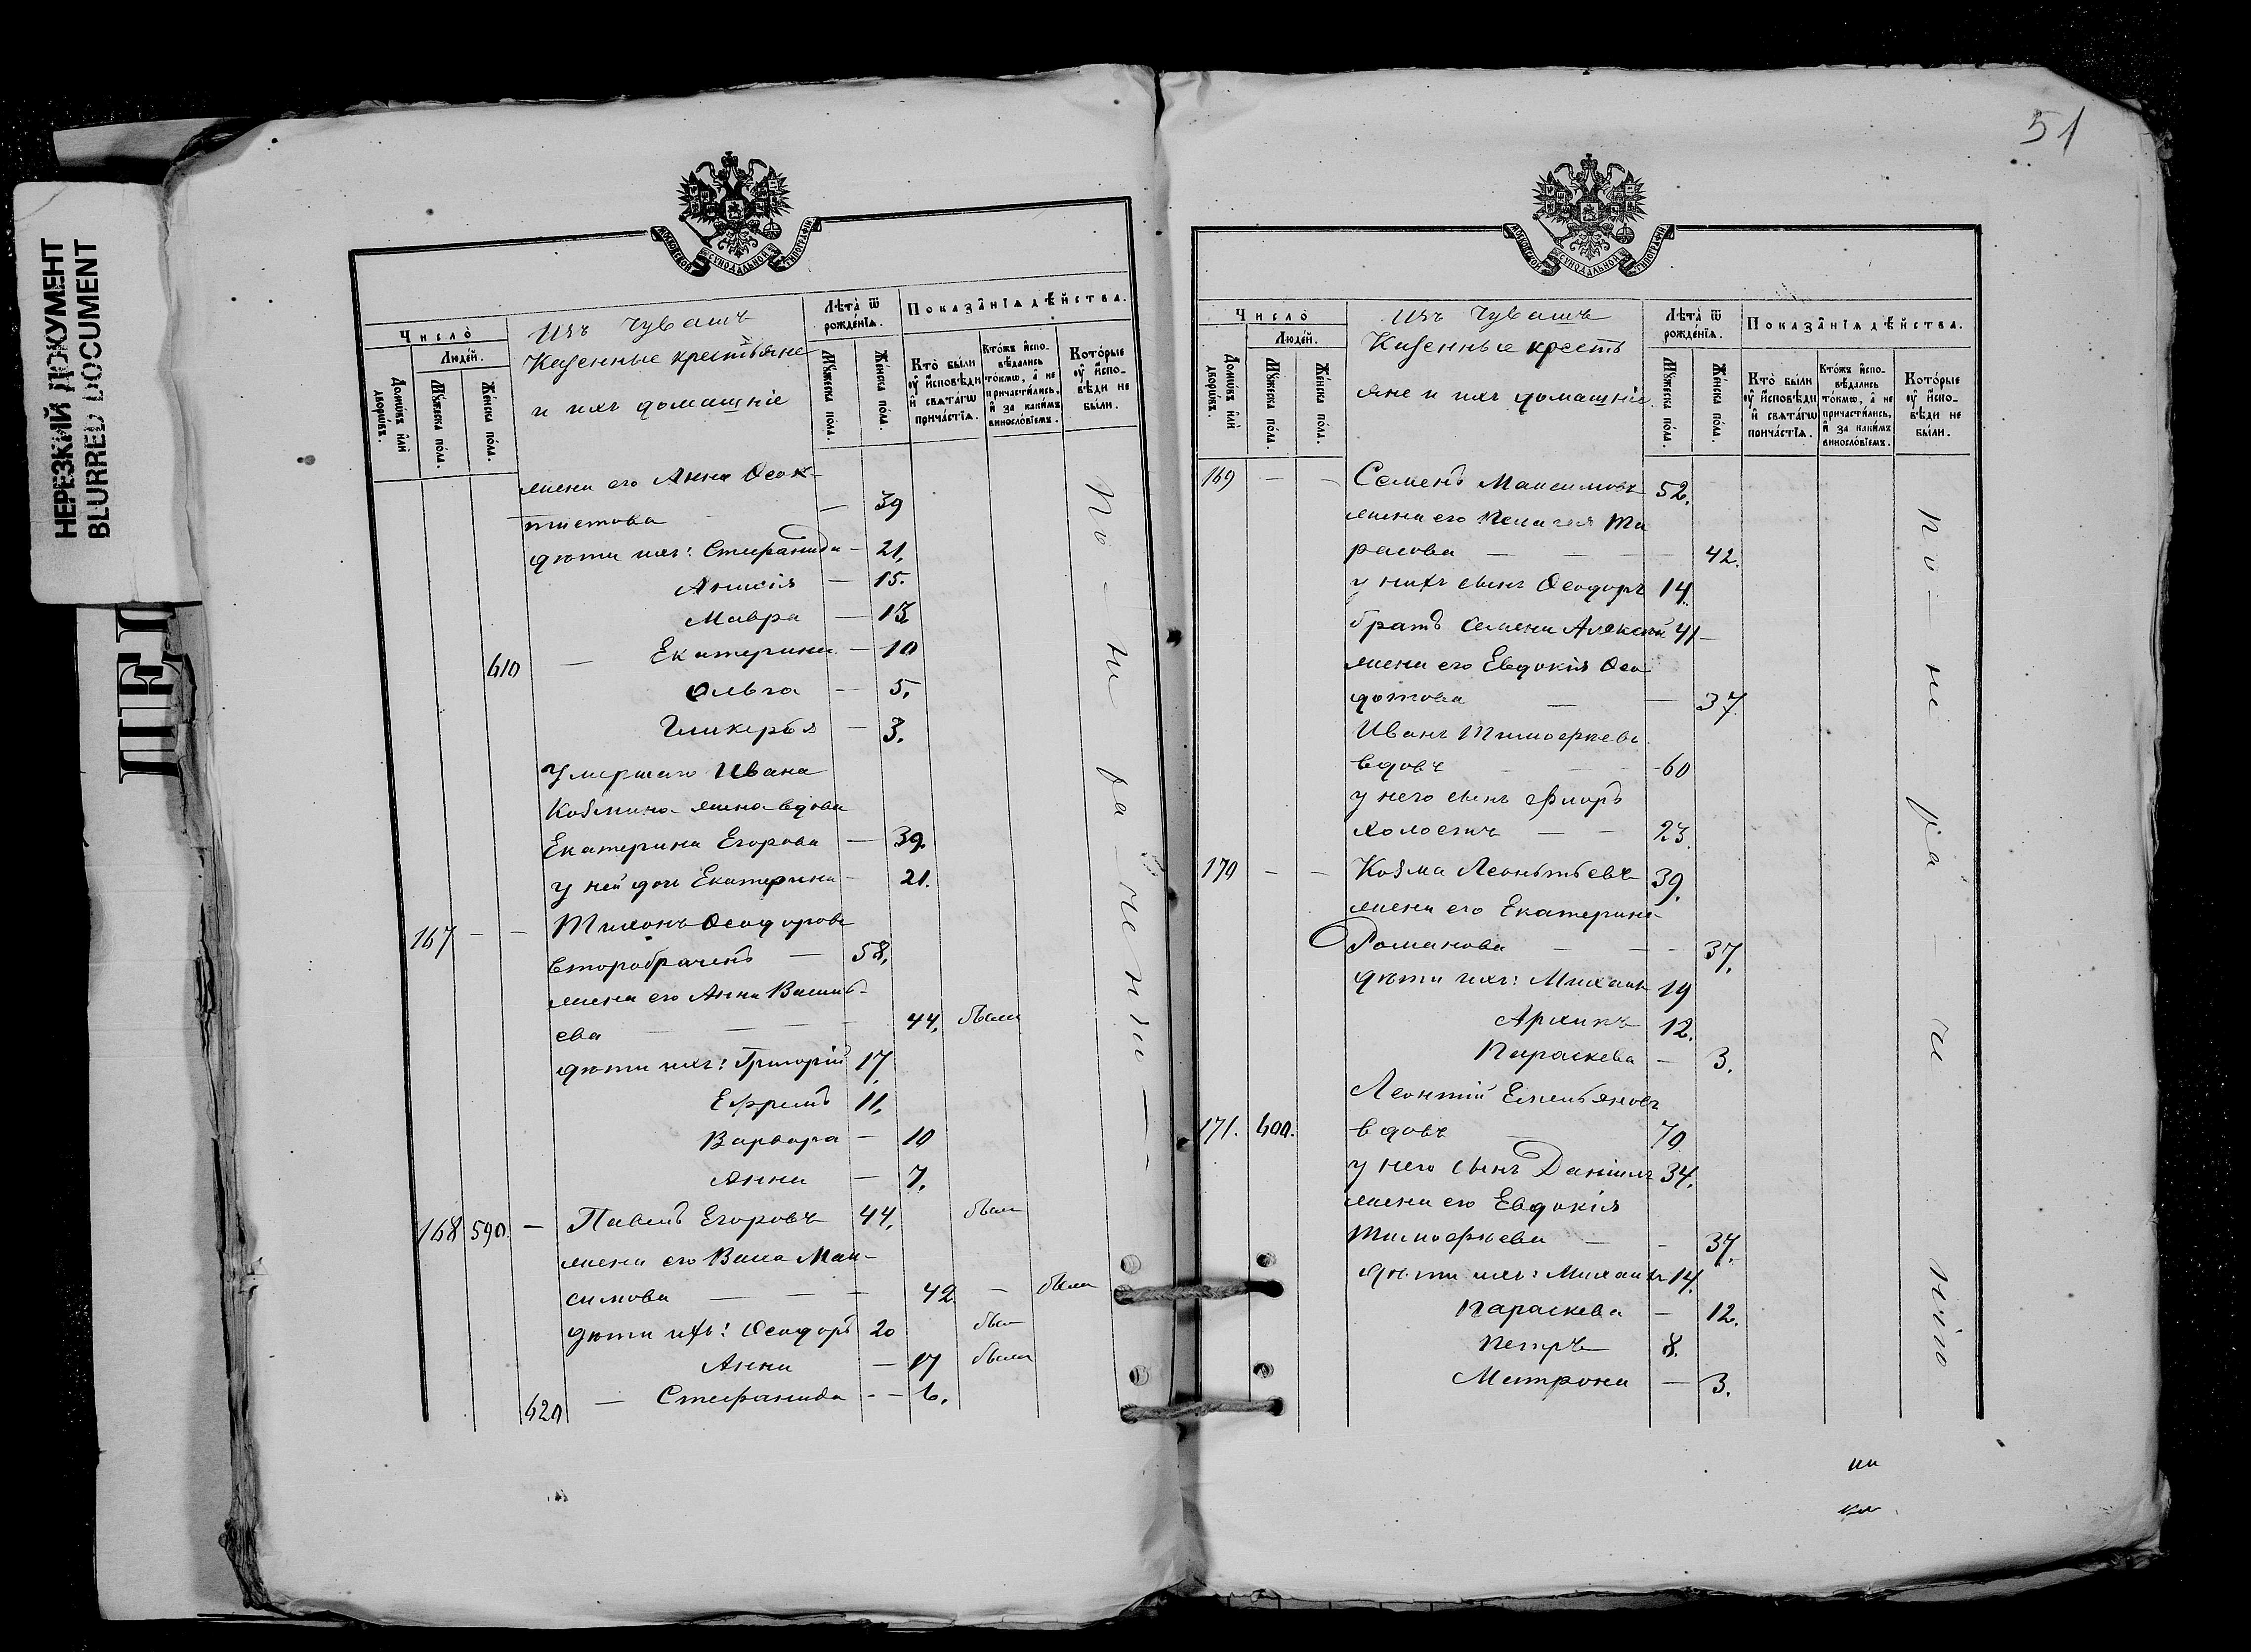 51
НЕРЕЗКИЙ ДОКУМЕНТ
BLURRED DOCUMENT
МОСКОВСКОЙ СѴНОДАЛЬНОЙ ТИПОГРАФІИ
Число̀
Людéй.
Домѡ́въ и҆лѝ дворѡ́въ.
Мꙋ́жеска по́ла.
Же́нска по́ла.
Изъ Чувашъ
Казенные крестьяне
и ихъ домашніе
Лѣта̀ ѿ рожде́нїѧ.
Мꙋ́жеска по́ла.
Же́нска по́ла.
Показа̑нїѧ дѣ́йства.
Кто̀ бы́ли ᲂу҆ и҆́сповѣди и҆ свѧта́гѡ прича́стїѧ.
Кто́жъ и҆спо-вѣ́дались то́кмѡ, а҆ не причасти́лись, и҆ за каки́мъ винословїемъ.
Кото́рые ᲂу҆ и҆́спо-вѣди не бы́ли.
жена его Анна Ѳеок-
тистова — 39
дѣти ихъ: Стефанида — 21.
Анисія — 15.
Мавра — 13
610 — Екатерина — 10
Ольга — 5.
Гликерья — 3.
Умершаго Ивана
Козмина жена вдова
Екатерина Егорова — 39.
у ней дочь Екатерина — 21.
167 — — Тихонъ Ѳеодоровъ
второбраченъ — 58.
жена его Анна Василь-
ева — — — — 44. была
дѣти ихъ: Григорій 17
Ефремъ 11.
Варвара — 10
Анна — 7.
168 590. — Павелъ Егоровъ 44. былъ
жена его Васса Мак-
симова — — — 42 — была
дѣти ихъ: Ѳеодоръ 20 былъ
Анна — 17 была
620 — Стефанида — — 6.
по — не ра — че нiю —
Число̀
Людéй.
Домѡ́въ и҆лѝ дворѡ́въ.
Мꙋ́жеска по́ла.
Же́нска по́ла.
Изъ Чувашъ
Казенные кресть
яне и ихъ домашніе.
Лѣта̀ ѿ рожде́нїѧ.
Мꙋ́жеска по́ла.
Же́нска по́ла.
Показа̑нїѧ дѣ́йства.
Кто̀ бы́ли ᲂу҆ и҆́сповѣди и҆ свѧта́гѡ прича́стїѧ.
Кто́жъ и҆спо-вѣ́дались то́кмѡ, а҆ не причасти́лись, и҆ за каки́мъ винословїемъ.
Кото́рые ᲂу҆ и҆́спо-вѣди не бы́ли.
169 — — Семенъ Максимовъ 52.
жена его Пелагея Та
расова — — — — 42.
у нихъ сынъ Ѳеодоръ 14.
братъ Семена Алексѣй 41 —
жена его Евдокія Ѳео
дотова — — 37.
Иванъ Тимоѳеевъ
вдовъ — — 60
у него сынъ Флоръ
холостъ — — 23.
170 — — Козма Леонтьевъ 39.
жена его Екатерина
Романова — — — 37.
дѣти ихъ: Михаилъ 19
Архипъ 12.
Параскева — 3.
Леонтій Емельяновъ
171. 600. вдовъ — 70
у него сынъ Даніилъ 34.
жена его Евдокія
Тимоѳеева — — 37.
дѣти ихъ: Михаилъ 14.
Параскева — 12.
Петръ 8.
Матрона — 3.
по — не ра — че нiю